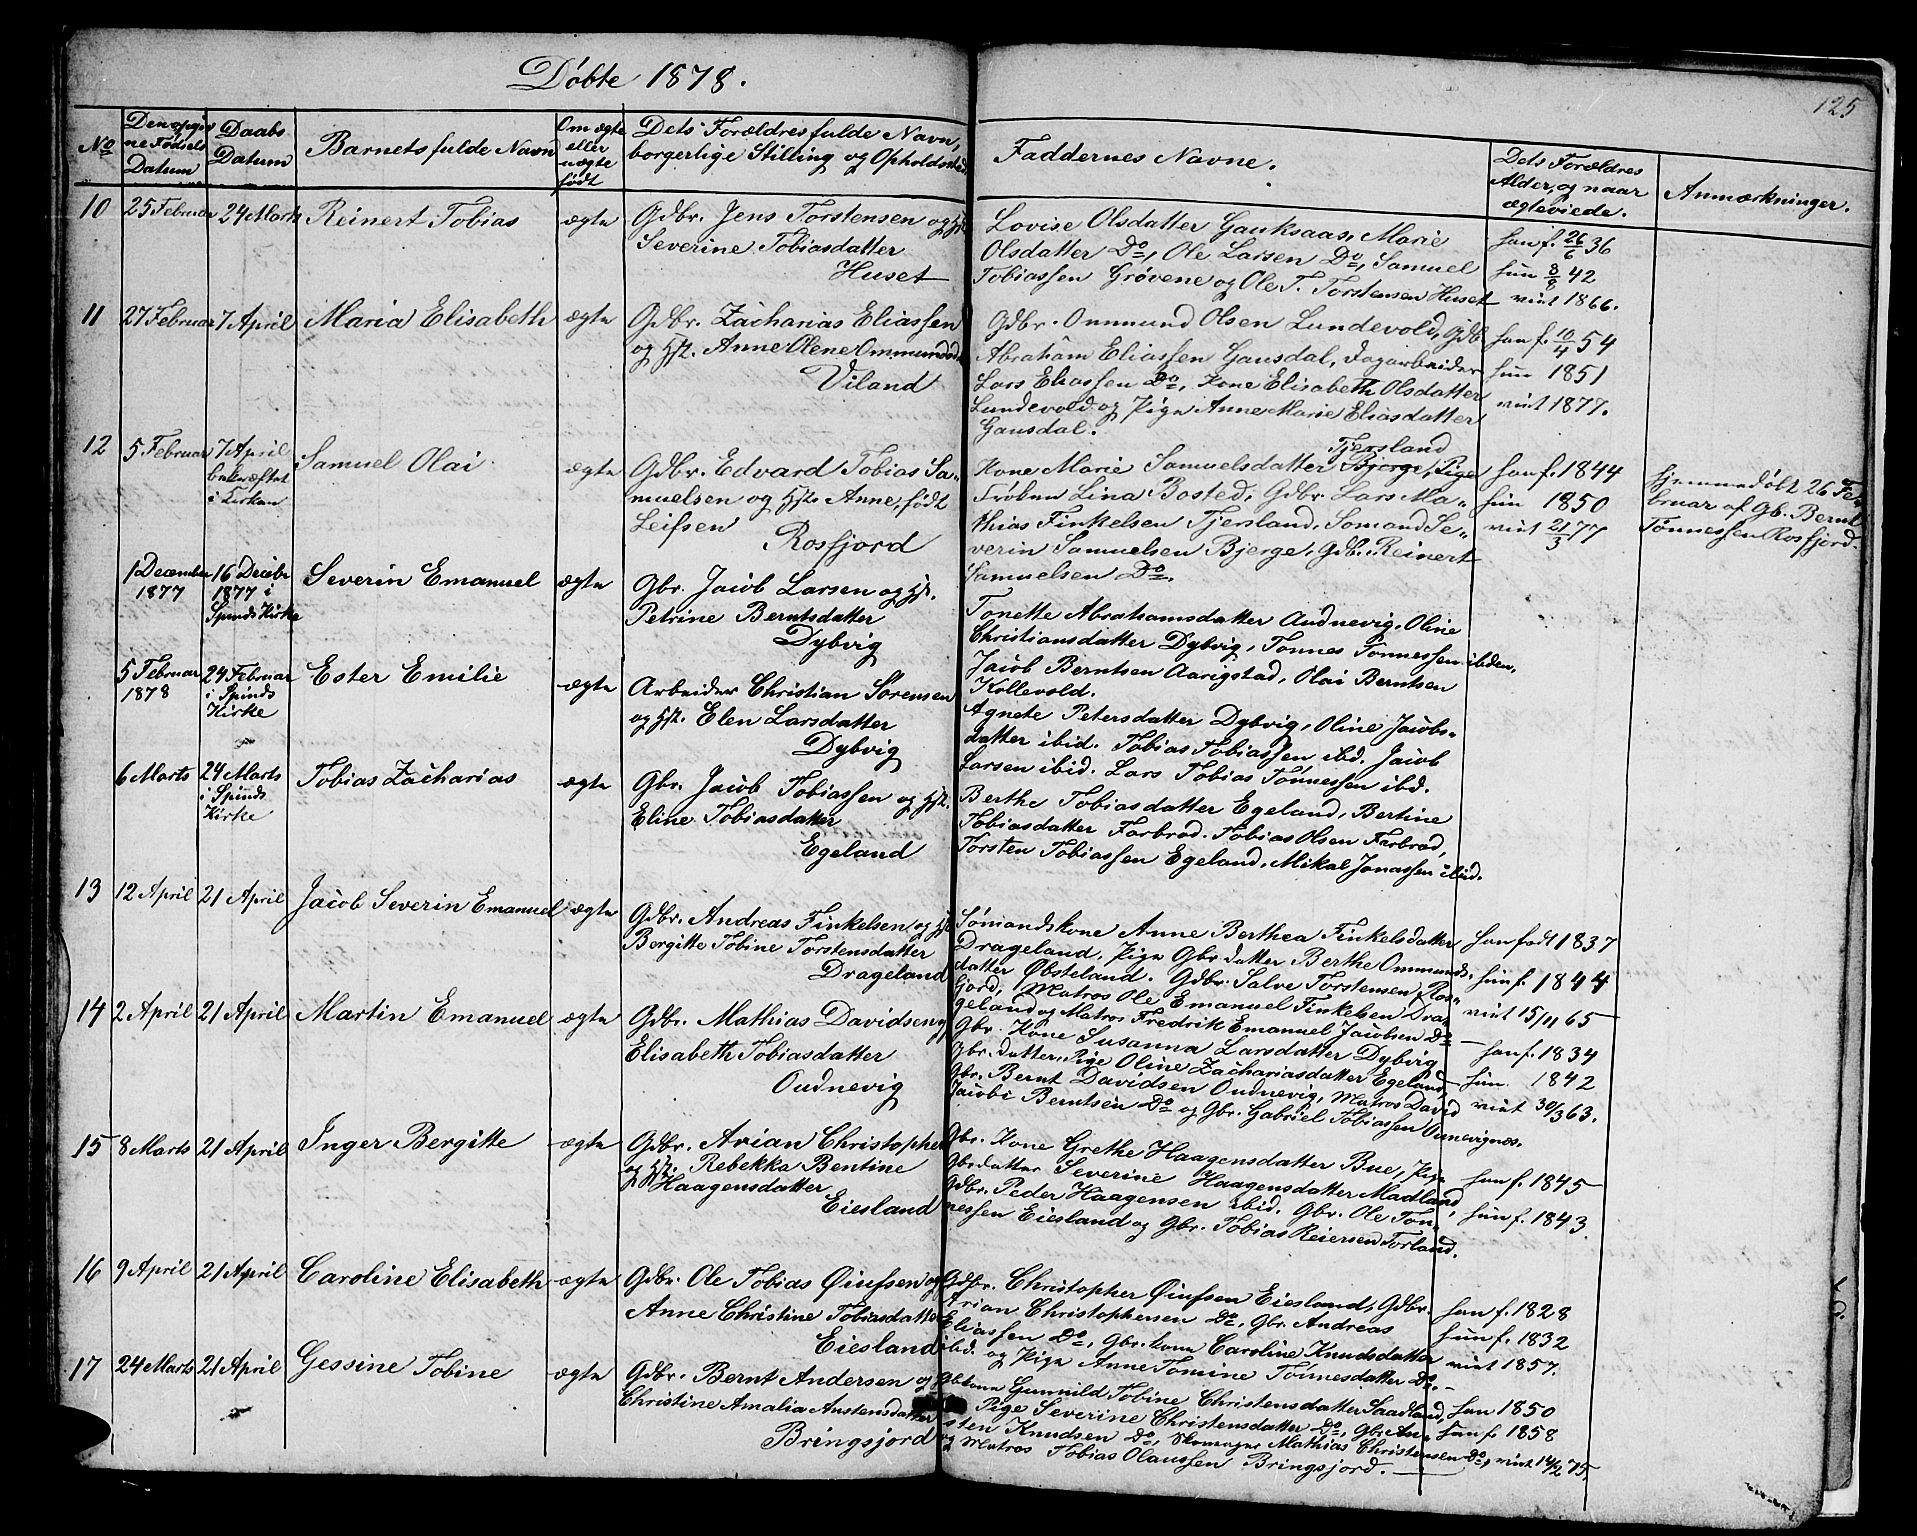 Döbte 1878.
125
No
Den opgiv
ne Födsels
Datum
Daabs
Datum
Barnets fulde Navn
Om ægte
eller
uægte
født
Dets Forældres fulde Navn,
borgerlige Stilling og Opholdssted
Faddernes Navne.
Dets Forældres
Alder, og naar
ægteviede.
Anmærkninger.
10 25 Februar 24 Marts Reinert Tobias ægte
Gdbr. Jens Torstensen og Hst.
Severine Tobiasdatter
Huset
Lovise Olsdatter Gauksaas, Marie
Olsdatter Do, Ole Larsen Do, Samuel
Tobiassen Grövene og Ole T. Torstensen Huset
han f. 26/6 36
hun 8/8 42
viet 1866.
11 27 Februar 7 April Maria Elisabeth ægte
Gdbr. Zacharias Eliassen
og Hst. Anne Olene Ommundsd.
Viland
Gdbr. Ommund Olsen Lundevold, Gdb
Abraham Eliassen Gausdal, Jagarbeider
Lars Eliassen Do, Kone Elisabeth Olsdatter
Lundevold og Pige Anne Marie Eliasdatter
Gausdal.
han f. 10/4 54
hun 1851
viet 1877.
12 5 Februar 7 April
bekræftet
i Kirken
Samuel Olai ægte
Gdbr. Edvard Tobias Sa-
muelsen og Hst. Anne, født
Leifsen
Rosfjord
Tjersland
Kone Marie Samuelsdatter Bjerge, Pige
Fröken Lina Bosted, Gdbr. Lars Ma-
thias Finkelsen Tjersland, Sömand Se-
verin Samuelsen Bjerge, Gdb. Reinert
Samuelsen Do.
han f. 1844
hun 1850
viet 21/3 77
Hjemmedöbt 26 Fe-
bruar af Gb. Bernt
Tönnessen Rosfjord.
1 December
1877
16 Decbr
1877 i
Spinds Kirke
Severin Emanuel ægte
Gbr. Jacob Larsen og Hst.
Petrine Berntsdatter
Dybvig
Tonette Abrahamsdatter Audnevig, Oline
Christiansdatter Dybvig, Tonnes Tonnessen ibden,
Jacob Berntsen Aarigstad, Olai Berntsen
Kollevold.
5 Februar
1878
24 Februar
i Spinds
Kirke
Ester Emilie ægte
Arbeider Christian Sörensen
og Hst. Elen Larsdatter
Dybvig
Agnete Petersdatter Dybvig, Oline Jacobs-
datter ibid. Tobias Tobiassen ibd. Jacob
Larsen ibid. Lars Tobias Tönnessen ibd.
6 Marts 24 Marts
i Spinds
Kirke
Tobias Zacharias ægte
Gbr. Jacob Tobiassen og Hst.
Eline Tobiasdatter
Egeland
Berthe Tobiasdatter Egeland, Bertine
Tobiasdatter Farbrod. Tobias Olsen Farbrod,
Torsten Tobiassen Egeland, Mikal Jonassen ibid.
13 12 April 21 April Jacob Severin Emanuel ægte
Gdbr. Andreas Finkelsen og Hst
Bergitte Tobine Torstensdatter
Drageland
Sömandskone Anne Berthea Finkelsdatter
Drageland, Pige Gbr datter Berthe Ommunds-
datter Obsteland. Gdbr. Salve Torstensen Ros-
fjord, Matros Ole Emanuel Finkelsen Dra-
geland og Matros Fredrik Emanuel Jacobsen Do
han født 1837
hun f. 1844
viet 15/11 65
14 2 April 21 April Martin Emanuel ægte
Gdbr. Mathias Davidsen og
Elisabeth Tobiasdatter
Oudnevig
Gbr. Kone Susanna Larsdatter Dybvig
Gbr. datter, Pige Oline Zachariasdatter Egeland,
Gbr. Bernt Davidsen Oudnevig, Matros David
Jacobi Berntsen Do og Gbr. Gabriel Tobiassen Ounevignes.
han f. 1834
hun 1842
viet 30/3 63.
15 8 Marts 21 April Inger Bergitte ægte
Gdbr. Arian Christopher
og Hst. Rebekka Bentine
Haagensdatter
Eiesland
Gbr. Kone Grethe Haagensdatter Bue, Pige
Gbrdatter Severine Haagensdatter Madland,
Gdbr. Peder Haagensen ibid. Gbr. Ole Ton-
nessen Eiesland og Gbr. Tobias Reiersen Forland.
han f. 1845
hun f. 1843.
16 9 April 21 April Caroline Elisabeth ægte
Gdbr. Ole Tobias Öiufsen og
Anne Christine Tobiasdatter
Eiesland
Gdbr. Christopher Öiufsen Eiesland, Gdbr.
Arian Christophersen Do, Gbr. Andreas
Eliassen Do, Gbr. kone Caroline Knudsdatter
ibd. og Pige Anne Tomine Tönnesdatter Do.
han f. 1828
hun f. 1832
viet 1857.
17 24 Marts 21 April Gessine Tobine ægte
Gdbr. Bernt Andersen og
Christine Amalia Austensdatter
Bringsjord
Gbkone Gunnild Tobine Christensdatter Saadland,
Pige Severine Christensdatter Do, Gbr. Au-
sten Knudsen Do, Skomager Mathias Christensen Do,
og Matros Tobias Olaussen Bringsjord.
han 1850
hun f. 1858
viet 14/2 75.